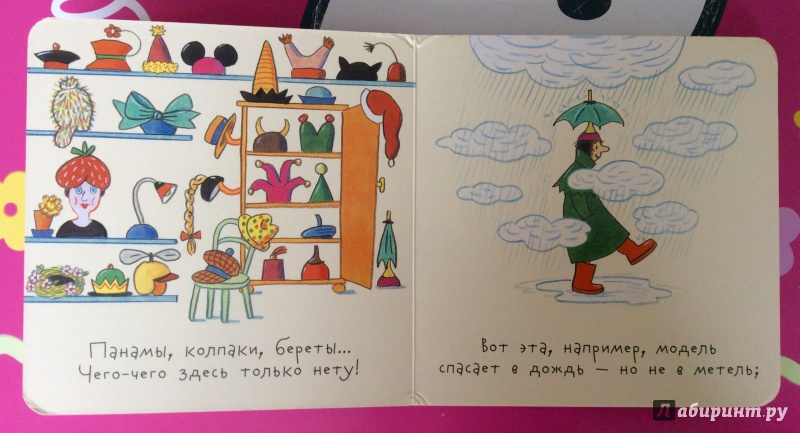 Панамы, колпаки, береты...
Чего-чего здесь только нету!
Вот эта, например, модель
спасает в дождь – но не в метель;
Лабиринт.ру